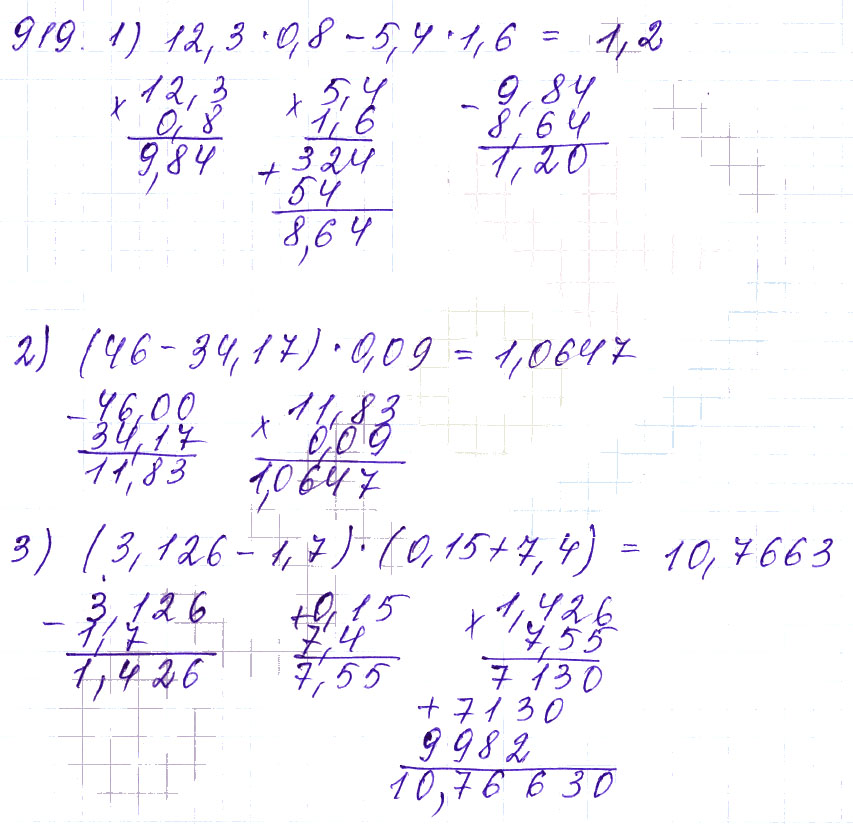 919. 1) 12,3·0,8-5,4·1,6 = 1,2
× 12,3 × 5,4 - 9,84
0,8 1,6 8,64
9,84 + 324 1,20
54
8,64
2) (46-34,17)·0,09 = 1,0647
-46,00 × 11,83
34,17 0,09
11,83 1,0647
3) (3,126-1,7)·(0,15+7,4) = 10,7663
- 3,126 +0,15 × 1,426
1,7 7,4 7,55
1,426 7,55 7130
+7130
9982
10,76630